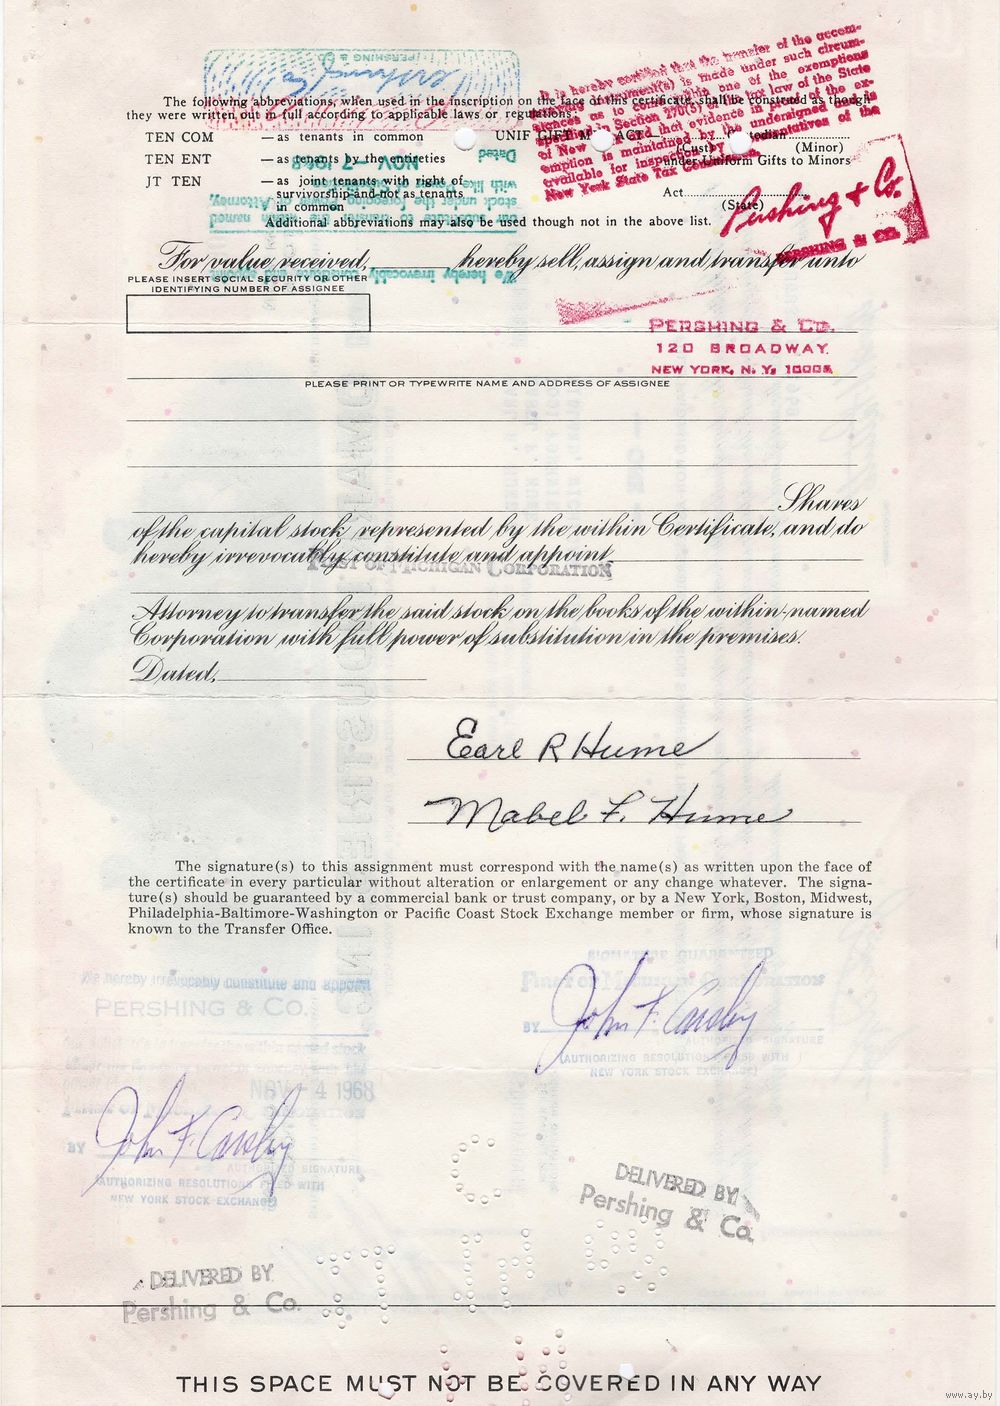 The following abbreviations, when used in the inscription on the face of this certificate, shall be construed as though
they were written out in full according to applicable laws or regulations:
TEN COM — as tenants in common UNIF GIFT M ACT— todian
(Cust) (Minor)
TEN ENT — as tenants by the entireties under Uniform Gifts to Minors
JT TEN — as joint tenants with right of
survivorship and not as tenants
in common
Act
(State)
Additional abbreviations may also be used though not in the above list.
It is hereby certified that the transfer of the accom-
is made under such circum-
stances as to come within one of the exemptions
specified in Section 270(5) of the tax law of the State
of New that evidence in proof of the ex-
emption is maintained by the undersigned and is
available for inspection by representatives of the
New York State Tax
Pershing & Co.
PERSHING & CO.
PERSHING &
Dated
NOV - 7 1968
our substitute to transfer the within named
stock under the foregoing Power of Attorney,
with like
We hereby irrevocably constitute and appoint
For value received, hereby sell, assign and transfer unto
PLEASE INSERT SOCIAL SECURITY OR OTHER
IDENTIFYING NUMBER OF ASSIGNEE
PERSHING & CO.
120 BROADWAY
NEW YORK, N. Y. 10005
PLEASE PRINT OR TYPEWRITE NAME AND ADDRESS OF ASSIGNEE
Shares
of the capital stock represented by the within Certificate, and do
hereby irrevocably constitute and appoint
FIRST OF MICHIGAN CORPORATION
Attorney to transfer the said stock on the books of the within-named
Corporation with full power of substitution in the premises.
Dated,
Earl R Hume
Mabel F. Hume
The signature(s) to this assignment must correspond with the name(s) as written upon the face of
the certificate in every particular without alteration or enlargement or any change whatever. The signa-
ture(s) should be guaranteed by a commercial bank or trust company, or by a New York, Boston, Midwest,
Philadelphia-Baltimore-Washington or Pacific Coast Stock Exchange member or firm, whose signature is
known to the Transfer Office.
SIGNATURE GUARANTEED
FIRST OF MICHIGAN CORPORATION
BY John F. Carsley
AUTHORIZED SIGNATURE
(AUTHORIZING RESOLUTIONS FILED WITH
NEW YORK STOCK EXCHANGE)
We hereby irrevocably constitute and appoint
PERSHING & CO.
NOV - 4 1968
FIRST OF CORPORATION
BY John F. Carsley
AUTHORIZED SIGNATURE
(AUTHORIZING RESOLUTIONS FILED WITH
NEW YORK STOCK EXCHANGE)
DELIVERED BY
Pershing & Co.
DELIVERED BY
Pershing & Co.
THIS SPACE MUST NOT BE COVERED IN ANY WAY
www.ay.by